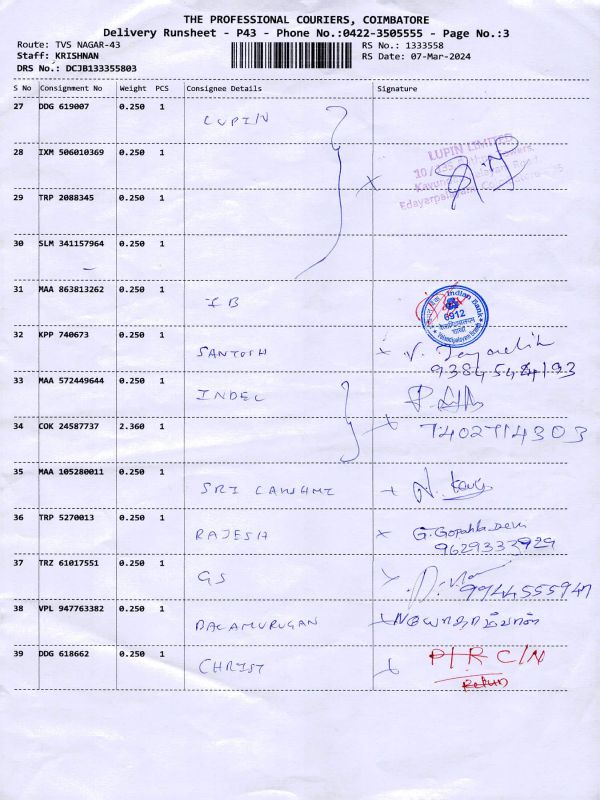 THE PROFESSIONAL COURIERS, COIMBATORE
Delivery Runsheet - P43 - Phone No.:0422-3505555 - Page No.:3
Route: TVS NAGAR-43
RS No.: 1333558
Staff: KRISHNAN
RS Date: 07-Mar-2024
DRS No.: DCJB133355803
S No Consignment No Weight PCS Consignee Details Signature
27 DDG 619007 0.250 1 LUPIN
28 IXM 506010369 0.250 1
LUPIN LIMITED
29 TRP 2088345 0.250 1
30 SLM 341157964 0.250 1
31 MAA 863813262 0.250 1 IB
Indian Bank
6912
32 KPP 740673 0.250 1 SANTOSH
33 MAA 572449644 0.250 1 INDEL
34 COK 24587737 2.360 1 7402714303
35 MAA 105280011 0.250 1 SRI LAKSHMI
36 TRP 5270013 0.250 1 RAJESH
9629333929
37 TRZ 61017551 0.250 1 GS
9944555947
38 VPL 947763382 0.250 1 BALAMURUGAN
39 DDG 618662 0.250 1 CHRIST P/R C/N
Return